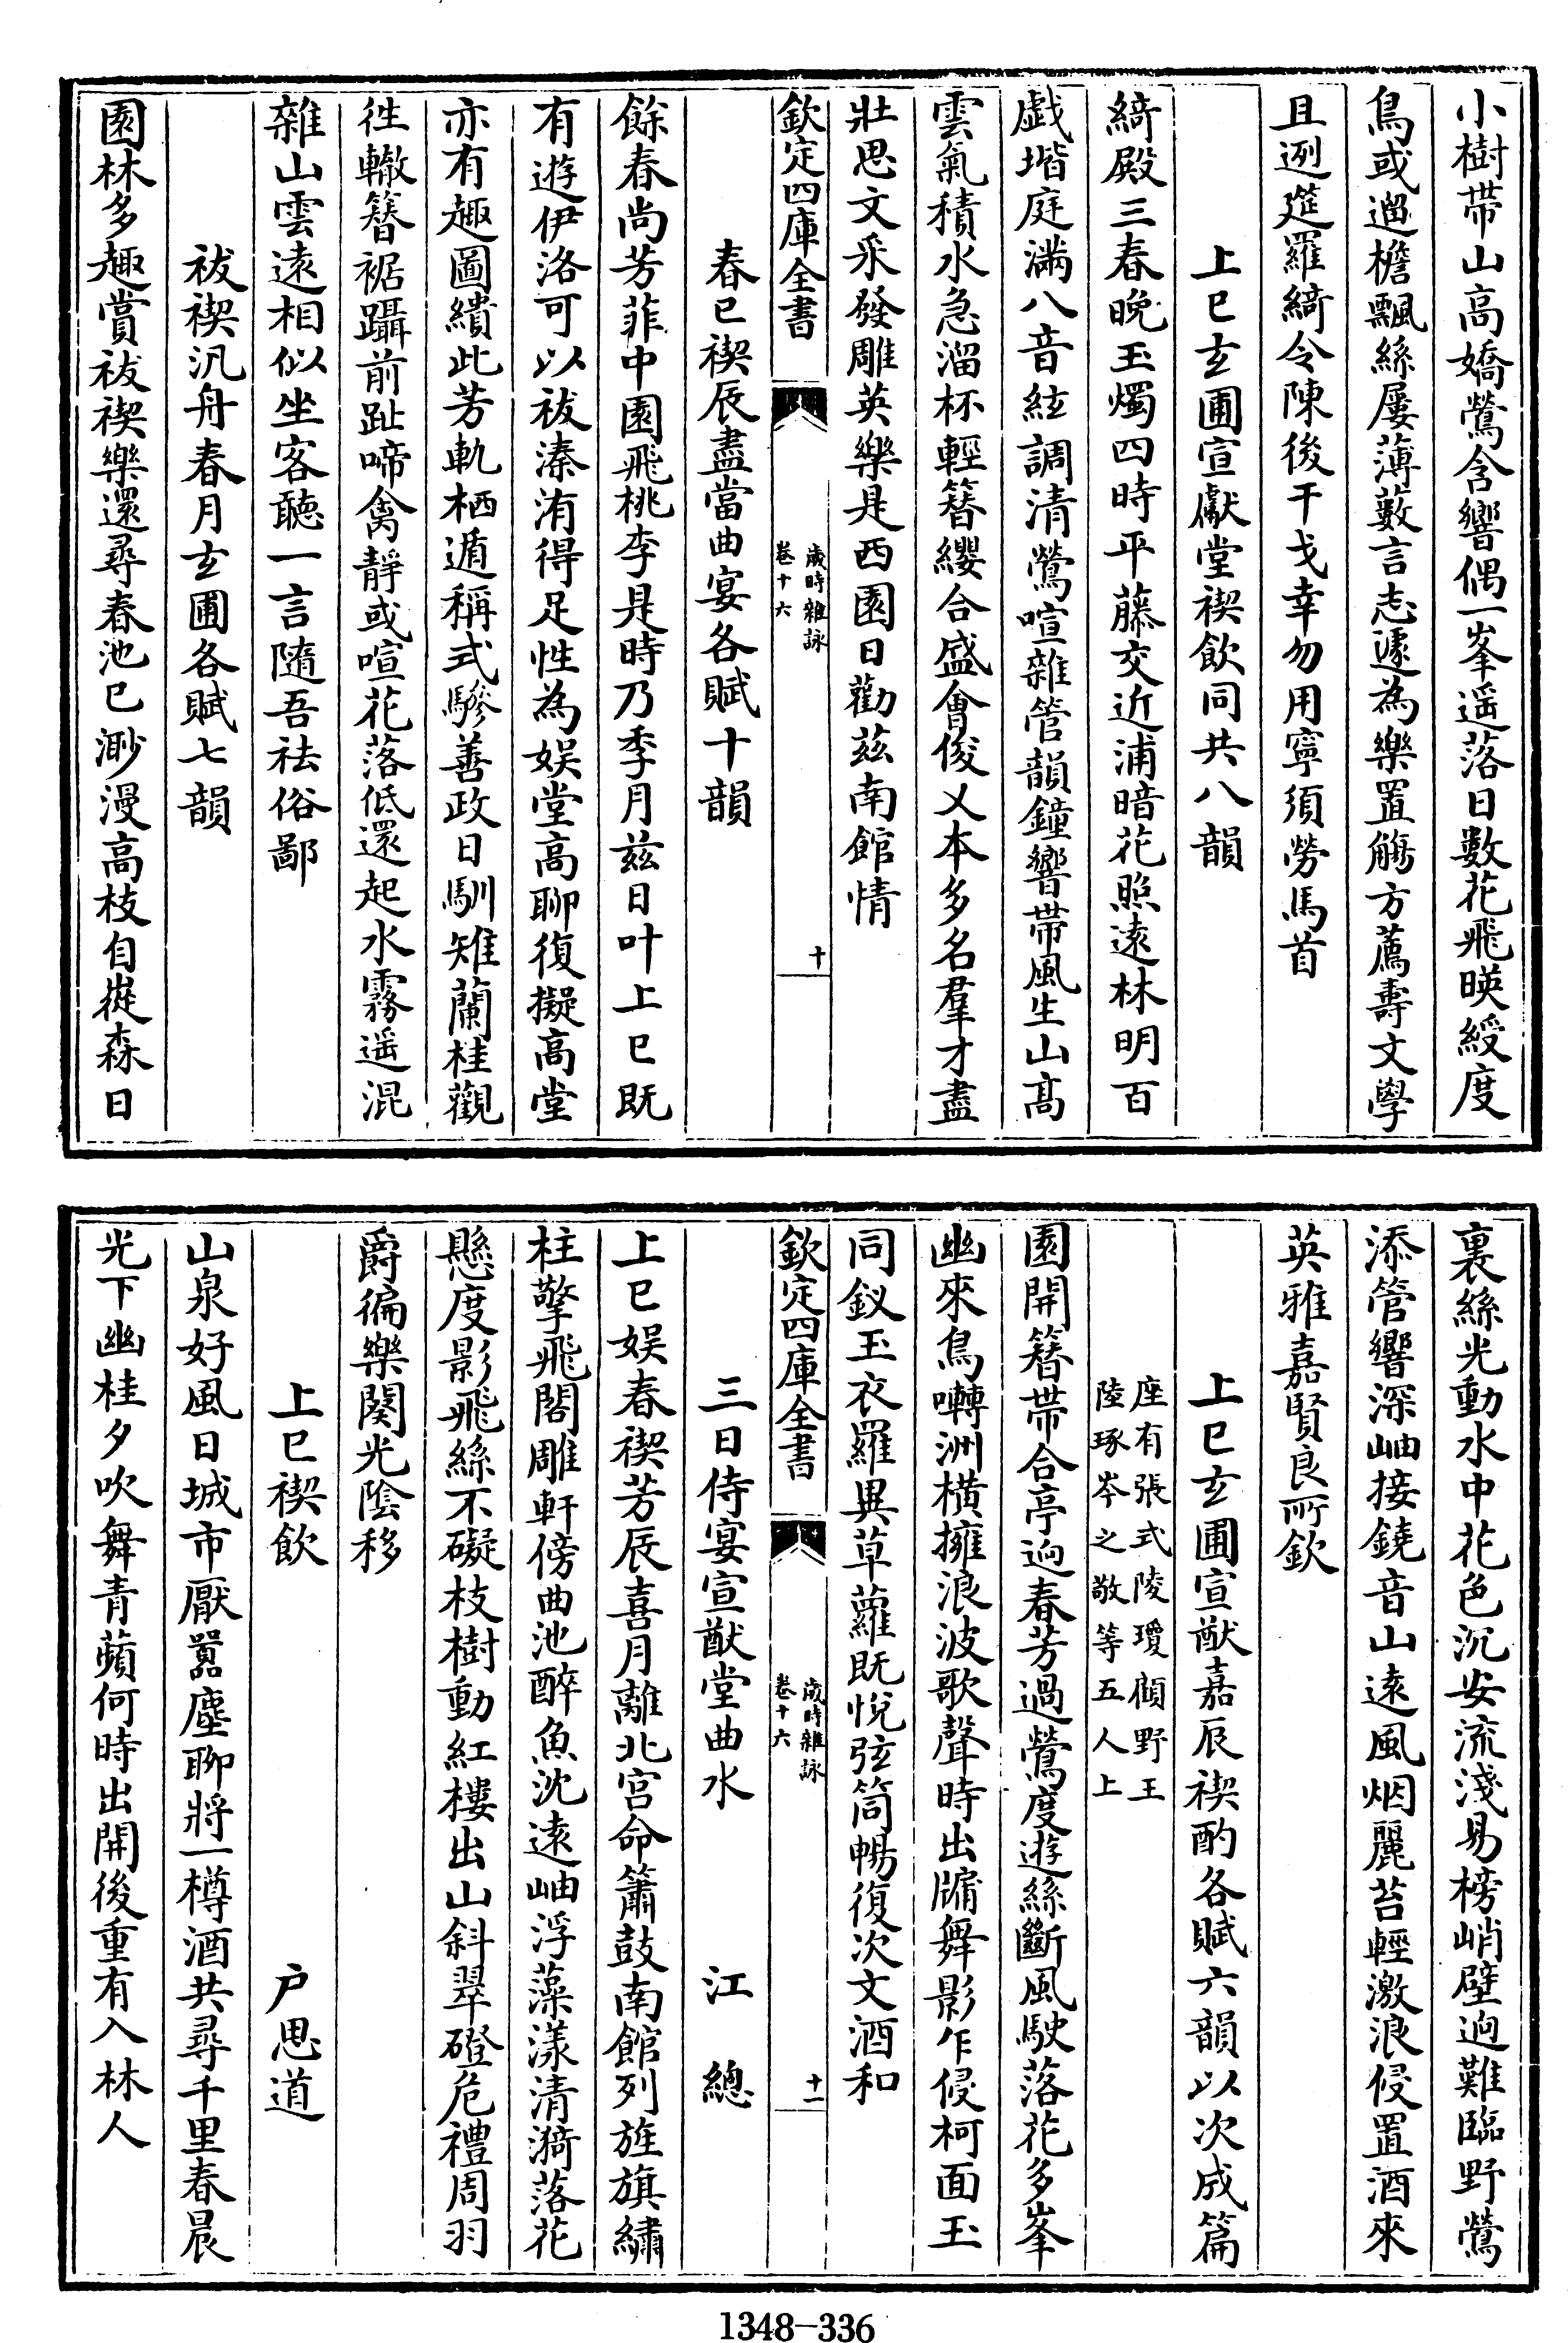 小樹帶山高嬌鶯含響偶一峯遥落日數花飛暎綬度
鳥或遡檐飄絲屢薄藪言志遽為樂置觴方薦壽文學
且迾筵羅綺令陳後干戈幸勿用寧須勞馬首
上巳玄圃宣獻堂禊飲同共八韻
綺殿三春晚玉燭四時平藤交近浦暗花照遠林明百
戱堦庭滿八音絃調清鶯喧雜管韻鐘響帶風生山髙
雲氣積水急溜杯輕簪纓合盛會俊乂本多名羣才盡
壯思文采發雕英樂是西園日勸兹南館情
欽定四庫全書
歲時雜詠
卷十六
十
春巳禊辰盡當曲宴各賦十韻
餘春尚芳菲中園飛桃李是時乃季月兹日叶上巳既
有遊伊洛可以祓溱洧得足性為娱堂高聊復擬高堂
亦有趣圖繢此芳軌栖遁稱式驂善政日馴雉蘭桂觀
徃轍簪裾躡前趾啼禽靜或喧花落低還起水霧遥混
雜山雲遠相似坐客聽一言隨吾祛俗鄙
祓禊汎舟春月玄圃各賦七韻
園林多趣賞祓禊樂還尋春池已渺漫高枝自嵷森日
裏絲光動水中花色沉安流淺易榜峭壁逈難臨野鶯
添管響深岫接鐃音山遠風烟麗苔輕激浪侵置酒來
英雅嘉賢良所欽
上巳玄圃宣猷嘉辰禊酌各賦六韻以次成篇
座有張式陵瓊頋野王
陸琢岑之敬等五人上
園開簪帶合亭逈春芳過鶯度遊絲斷風駛落花多峯
幽來鳥囀洲橫擁浪波歌聲時出牖舞影乍侵柯面玉
同釵玉衣羅異草蘿既悅弦筒暢復次文酒和
欽定四庫全書
歲時雜詠
卷十六
十一
三日侍宴宣猷堂曲水　江總
上巳娱春禊芳辰喜月離北宫命簫鼓南館列旌旗繡
柱擎飛閣雕軒傍曲池醉魚沈遠岫浮藻漾清漪落花
懸度影飛絲不礙枝樹動紅樓出山斜翠磴危禮周羽
爵徧樂闋光陰移
上巳禊飲　户思道
山泉好風日城市厭囂塵聊將一樽酒共尋千里春晨
光下幽桂夕吹舞青蘋何時出開後重有入林人
1348-336